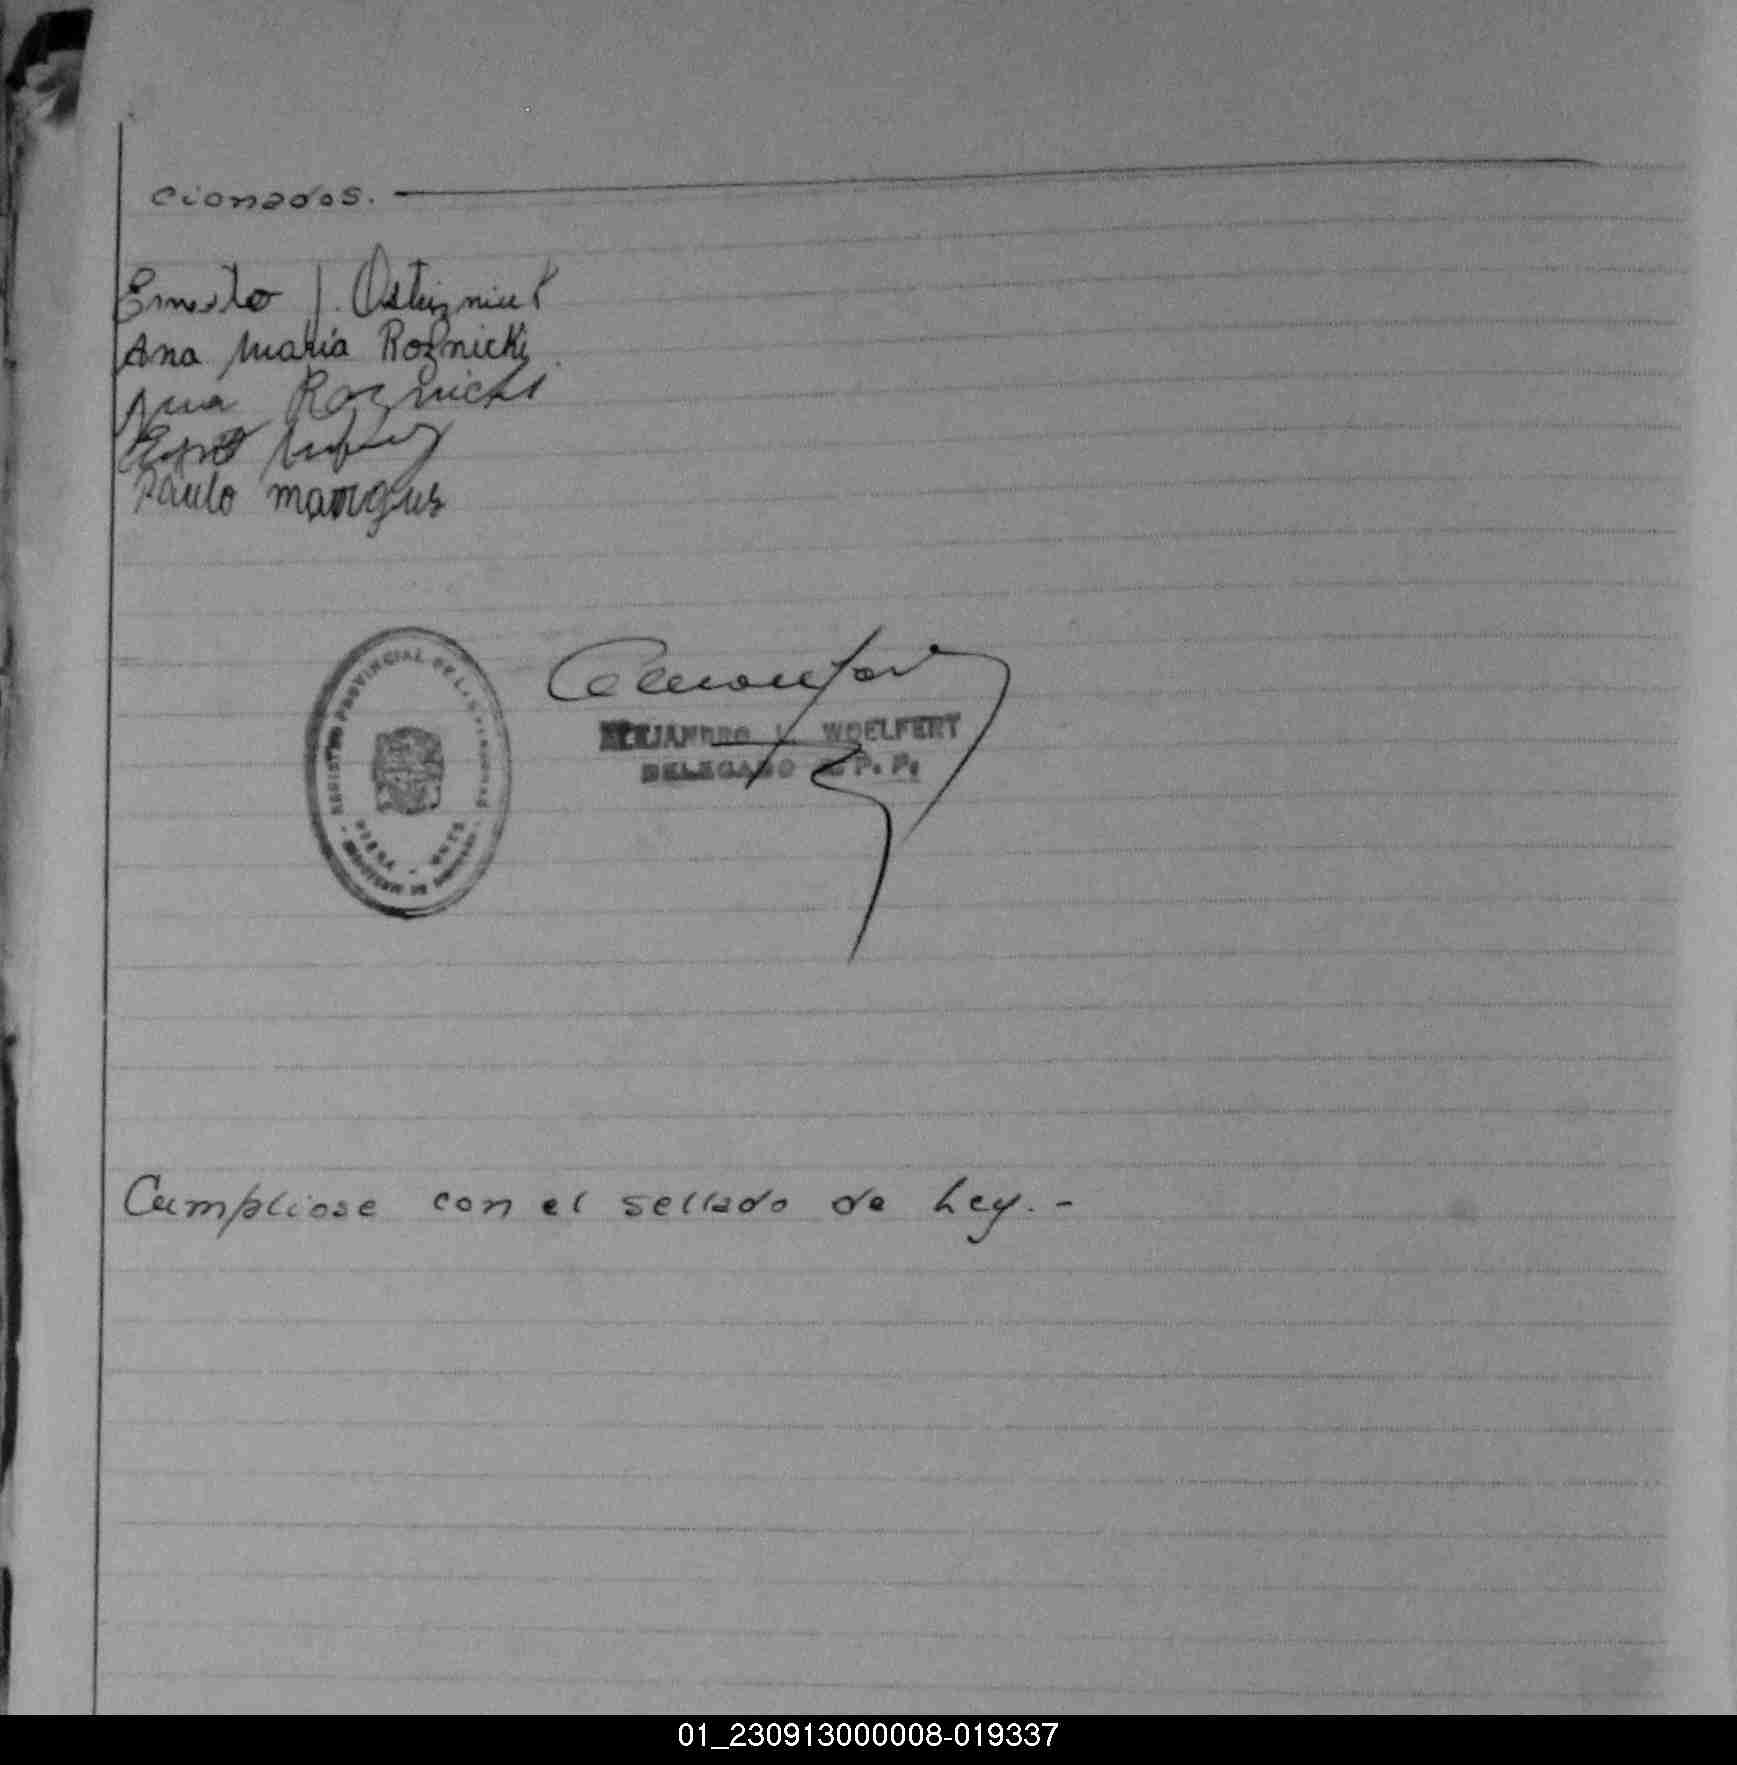 cionados.
Ernesto J. Ostrizniuk
Ana María Roznicki
Ana Roznicki
Paulo marqus
REGISTRO PROVINCIAL DE LAS PERSONAS
ALEJANDRO L. WOELFERT
DELEGADO R. P. P.
Cumpliose con el sellado de Ley. -
01_230913000008-019337